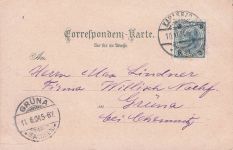 Correspondenz-Karte.
Nur für die Adresse.
An
Herrn Max Lindner
Firma William Nachf.
Grüna
bei Chemnitz
GRÜNA
11.6.04. 5-6N